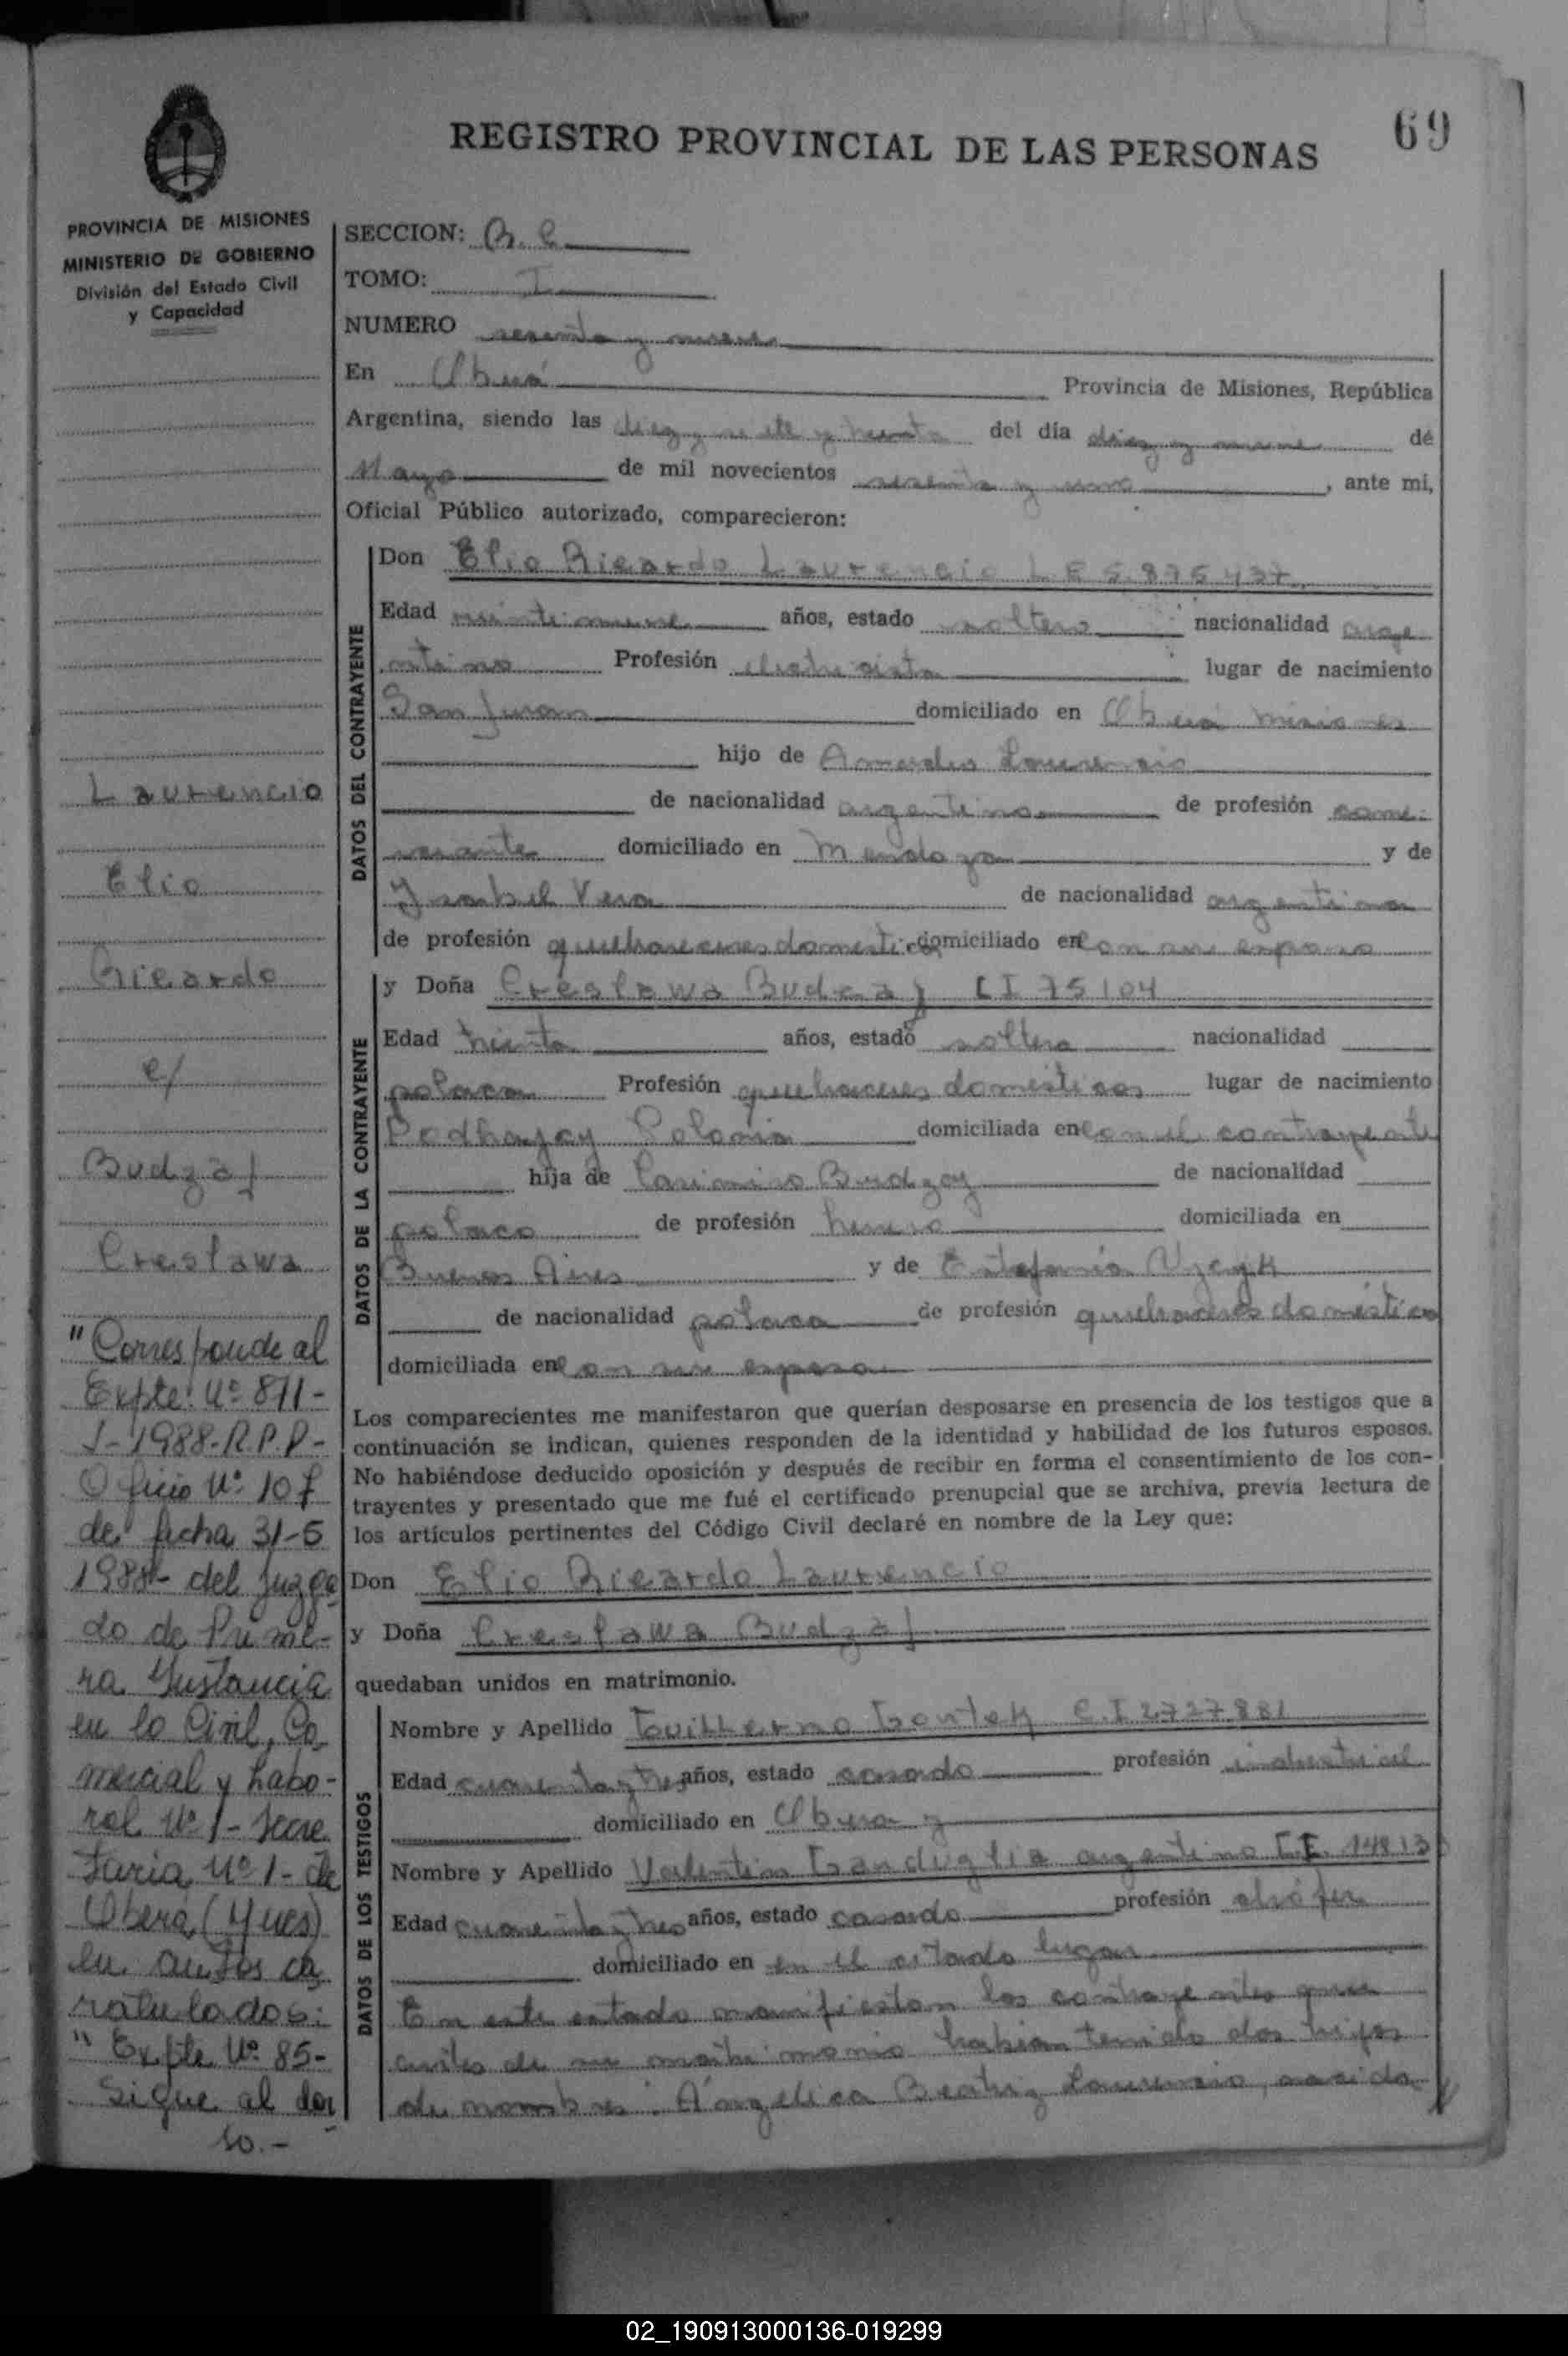 69
REGISTRO PROVINCIAL DE LAS PERSONAS
PROVINCIA DE MISIONES
MINISTERIO DE GOBIERNO
División del Estado Civil
y Capacidad
Laurencio
Elio
Ricardo
c/
Budzaj
Creslawa
"Corresponde al
Expte. Nº 811-
J-1988-R.P.P-
Oficio Nº 107
de fecha 31-5
1988- del Juzga
do de Prime-
ra Instancia
en lo Civil, Co-
mercial y Labo-
ral Nº 1- Secre
taria Nº 1- de
Oberá (Mnes)
en autos ca
ratulados:
"Expte Nº 85-
Sigue al dor
so.-
SECCION: B. C
TOMO: I
NUMERO sesenta y nueve
En Oberá Provincia de Misiones, República
Argentina, siendo las diez y siete y treinta del día diez y nueve de
Mayo de mil novecientos sesenta y uno, ante mi,
Oficial Público autorizado, comparecieron:
DATOS DEL CONTRAYENTE
Don Elio Ricardo Laurencio L E 5.875 437
Edad veintinueve años, estado soltero nacionalidad arge
ntino Profesión electricista lugar de nacimiento
San Juan domiciliado en Oberá Misiones
hijo de Amadeo Laurencio
de nacionalidad argentino de profesión come-
rciante domiciliado en Mendoza y de
Ysabel Vera de nacionalidad argentina
de profesión quehaceres domésticos domiciliado en con su esposo
DATOS DE LA CONTRAYENTE
y Doña Creslawa Budzaj C I 75104
Edad treinta años, estado soltera nacionalidad
polaca Profesión quehaceres domésticos lugar de nacimiento
Podhajcy Polonia domiciliada en con el contrayente
hija de Casimiro Budzay de nacionalidad
polaco de profesión herrero domiciliada en
Buenos Aires y de Estefania
de nacionalidad polaca de profesión quehaceres doméstico
domiciliada en con su esposo
Los comparecientes me manifestaron que querían desposarse en presencia de los testigos que a
continuación se indican, quienes responden de la identidad y habilidad de los futuros esposos.
No habiéndose deducido oposición y después de recibir en forma el consentimiento de los con-
trayentes y presentado que me fué el certificado prenupcial que se archiva, previa lectura de
los artículos pertinentes del Código Civil declaré en nombre de la Ley que:
Don Elio Ricardo Laurencio
y Doña Creslawa Budzaj
quedaban unidos en matrimonio.
DATOS DE LOS TESTIGOS
Nombre y Apellido Guillermo Gontek C.I 2727.881
Edad cuarenta y tres años, estado casado profesión industrial
domiciliado en Obera y
Nombre y Apellido Valentin Ganduglia argentino
Edad cuarenta y tres años, estado casado profesión chófer
domiciliado en en el citado lugar
En este estado manifiestan los contrayentes que
antes de su matrimonio habian tenido dos hijos
de nombres: Angélica Beatriz Laurencio, nacida
02_190913000136-019299